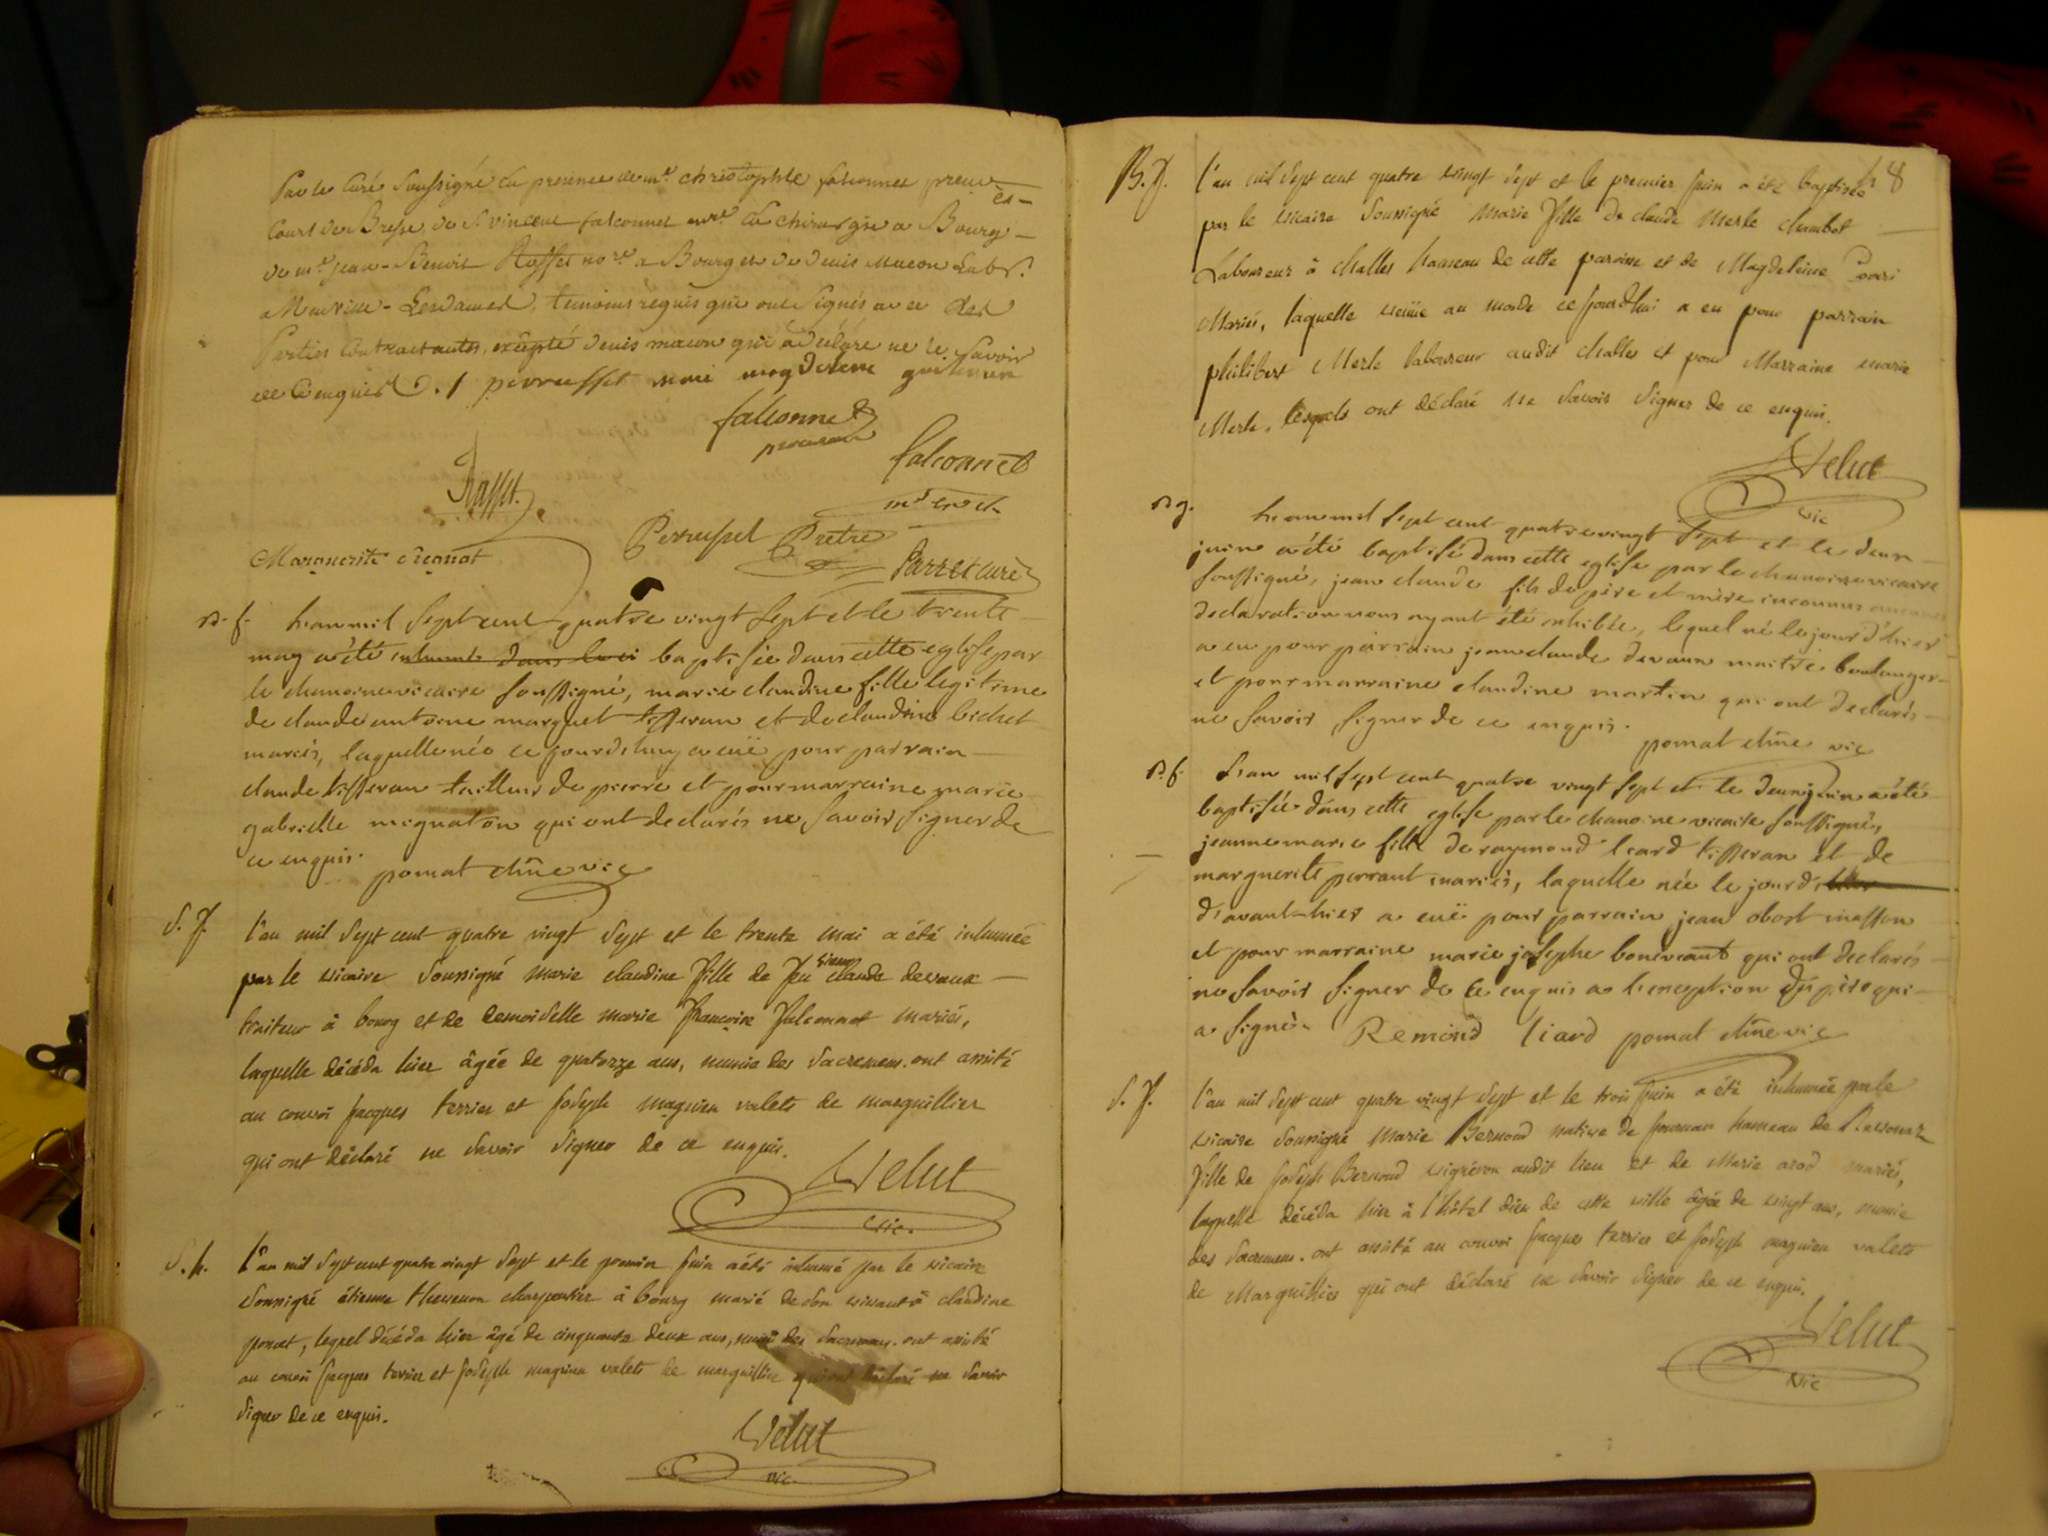 Par le Curé Soussigné en presence de mr christophle falconnet procur
ès
Cours de Bresse de Sr vincent falconnet mre en chirurgie a Bourg
de mr jean-Benoit Rasset nore a Bourg et de denis macon
temoins requis qui ont Signés avec les
Parties Contractantes, excepté denis macon qui a déclaré ne le Savoir
de ce enquis perrusset marie magdeleine
falconnet
procureur
falconnet
Rasset
Perrusset Pretre
Marguerite
Parret curé
B. f. L'an mil Sept cent quatre vingt Sept et le trente
may a été inhumé dans baptisée dans cette eglise par
le chanoine vicaire Soussigné, marie claudine fille legitime
de claude antoine marguet tisseran et de claudine bichet
mariés, laquelle née ce jourd'huy a euë pour parrain
claude tisseran tailleur de pierre et pour marraine marie
gabrielle mignaton qui ont declarés ne Savoir Signer de
ce enquis. pomat chne vic
S. f. L'an mil Sept cent quatre vingt Sept et le trente mai a été inhumée
par le vicaire Soussigné marie claudine fille de feu Sieur claude devaux
traiteur à bourg et de demoiselle marie françoise falconnet mariés,
laquelle décéda hier âgée de quatorze ans, munie des Sacremens. ont assisté
au convoi jacques terrier et joseph magnien valets de marguillier
qui ont déclaré ne Savoir Signer de ce enquis.
Velut
vic.
S. h. L'an mil Sept cent quatre vingt Sept et le premier juin a été inhumé par le vicaire
Soussigné étienne thevenon charpentier à bourg marié de Son vivant à claudine
ponat, lequel décéda hier âgé de cinquante deux ans, muni des Sacremens. ont assisté
au convoi jacques terrier et joseph magnien valets de marguillier qui ont déclaré ne Savoir
Signer de ce enquis.
Velut
vic.
B. f. L'an mil Sept cent quatre vingt Sept et le premier juin a été baptisée
par le vicaire Soussigné Marie fille de claude Merle chambot
Laboureur à challes hameau de cette paroisse et de Magdeleine
Mariés, laquelle venüe au monde ce jourd'hui a eu pour parrain
philibert Merle laboureur audit challes et pour Marraine marie
Merle, lesquels ont déclaré ne Savoir Signer de ce enquis.
Velut
vic
B. g. L'an mil Sept cent quatre vingt Sept et le deux
juin a été baptisé dans cette eglise par le chanoine vicaire
Soussigné, jean claude fils de père et mère inconnus
declaration nous ayant été exhibée, lequel né le jour d'hier
a eu pour parrain jean claude devaux maitre boulanger
et pour marraine claudine martin qui ont declarés
ne Savoir Signer de ce enquis.
pomat chne vic
B. f. L'an mil Sept cent quatre vingt Sept et le deux juin a été
baptisée dans cette eglise par le chanoine vicaire Soussigné,
jeanne marie fille de raymond liard tisseran et de
marguerite perraut mariés, laquelle née le jour d'hier
d'avant-hier a euë pour parrain jean obost masson
et pour marraine marie josephe bonevant qui ont declarés
ne Savoir Signer de ce enquis a l'exception du père qui
a Signé. Remond liard pomat chne vic
S. f. L'an mil Sept cent quatre vingt Sept et le trois juin a été inhumée par le
vicaire Soussigné Marie Bernoud native de hameau de
fille de joseph Bernoud vigneron audit lieu et de Marie mariés,
laquelle décéda hier à l'hôtel dieu de cette ville âgée de vingt ans, munie
des Sacremens. ont assisté au convoi jacques terrier et joseph magnien valets
de Marguillier qui ont déclaré ne Savoir Signer de ce enquis.
Velut
vic